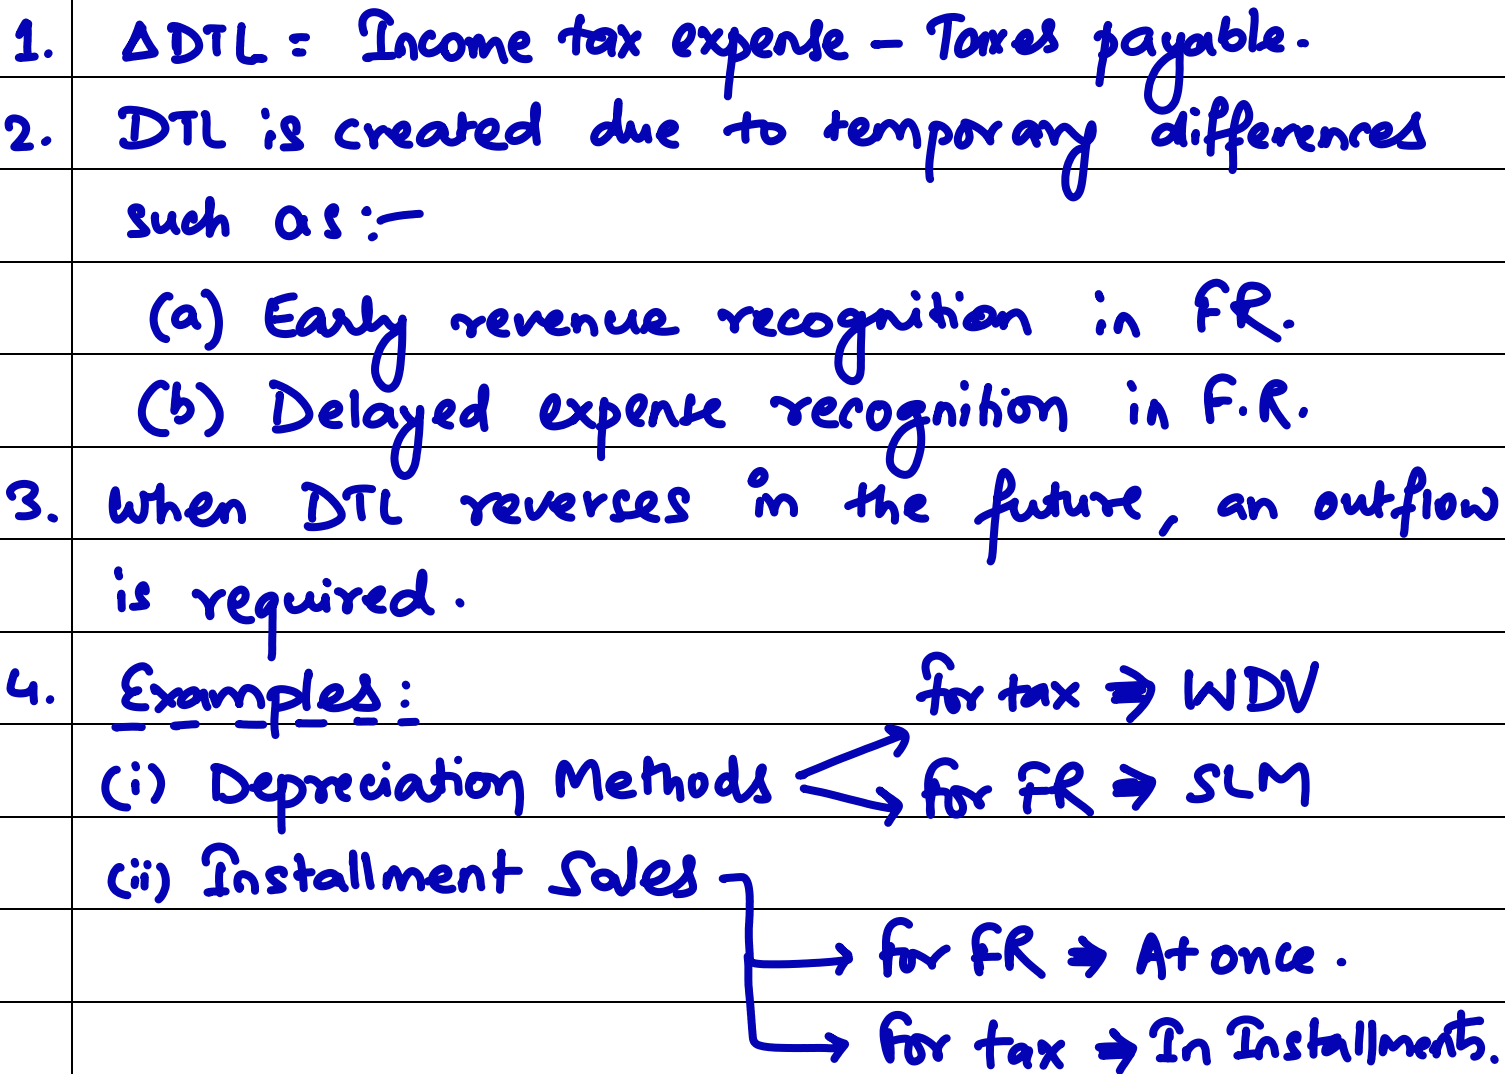 1. Δ DTL = Income tax expense – Taxes payable.
2. DTL is created due to temporary differences
such as :–
(a) Early revenue recognition in FR.
(b) Delayed expense recognition in F.R.
3. When DTL reverses in the future, an outflow
is required.
4. Examples : for tax → WDV
(i) Depreciation Methods for FR → SLM
(ii) Installment Sales
for FR → At once.
for tax → In Installments.